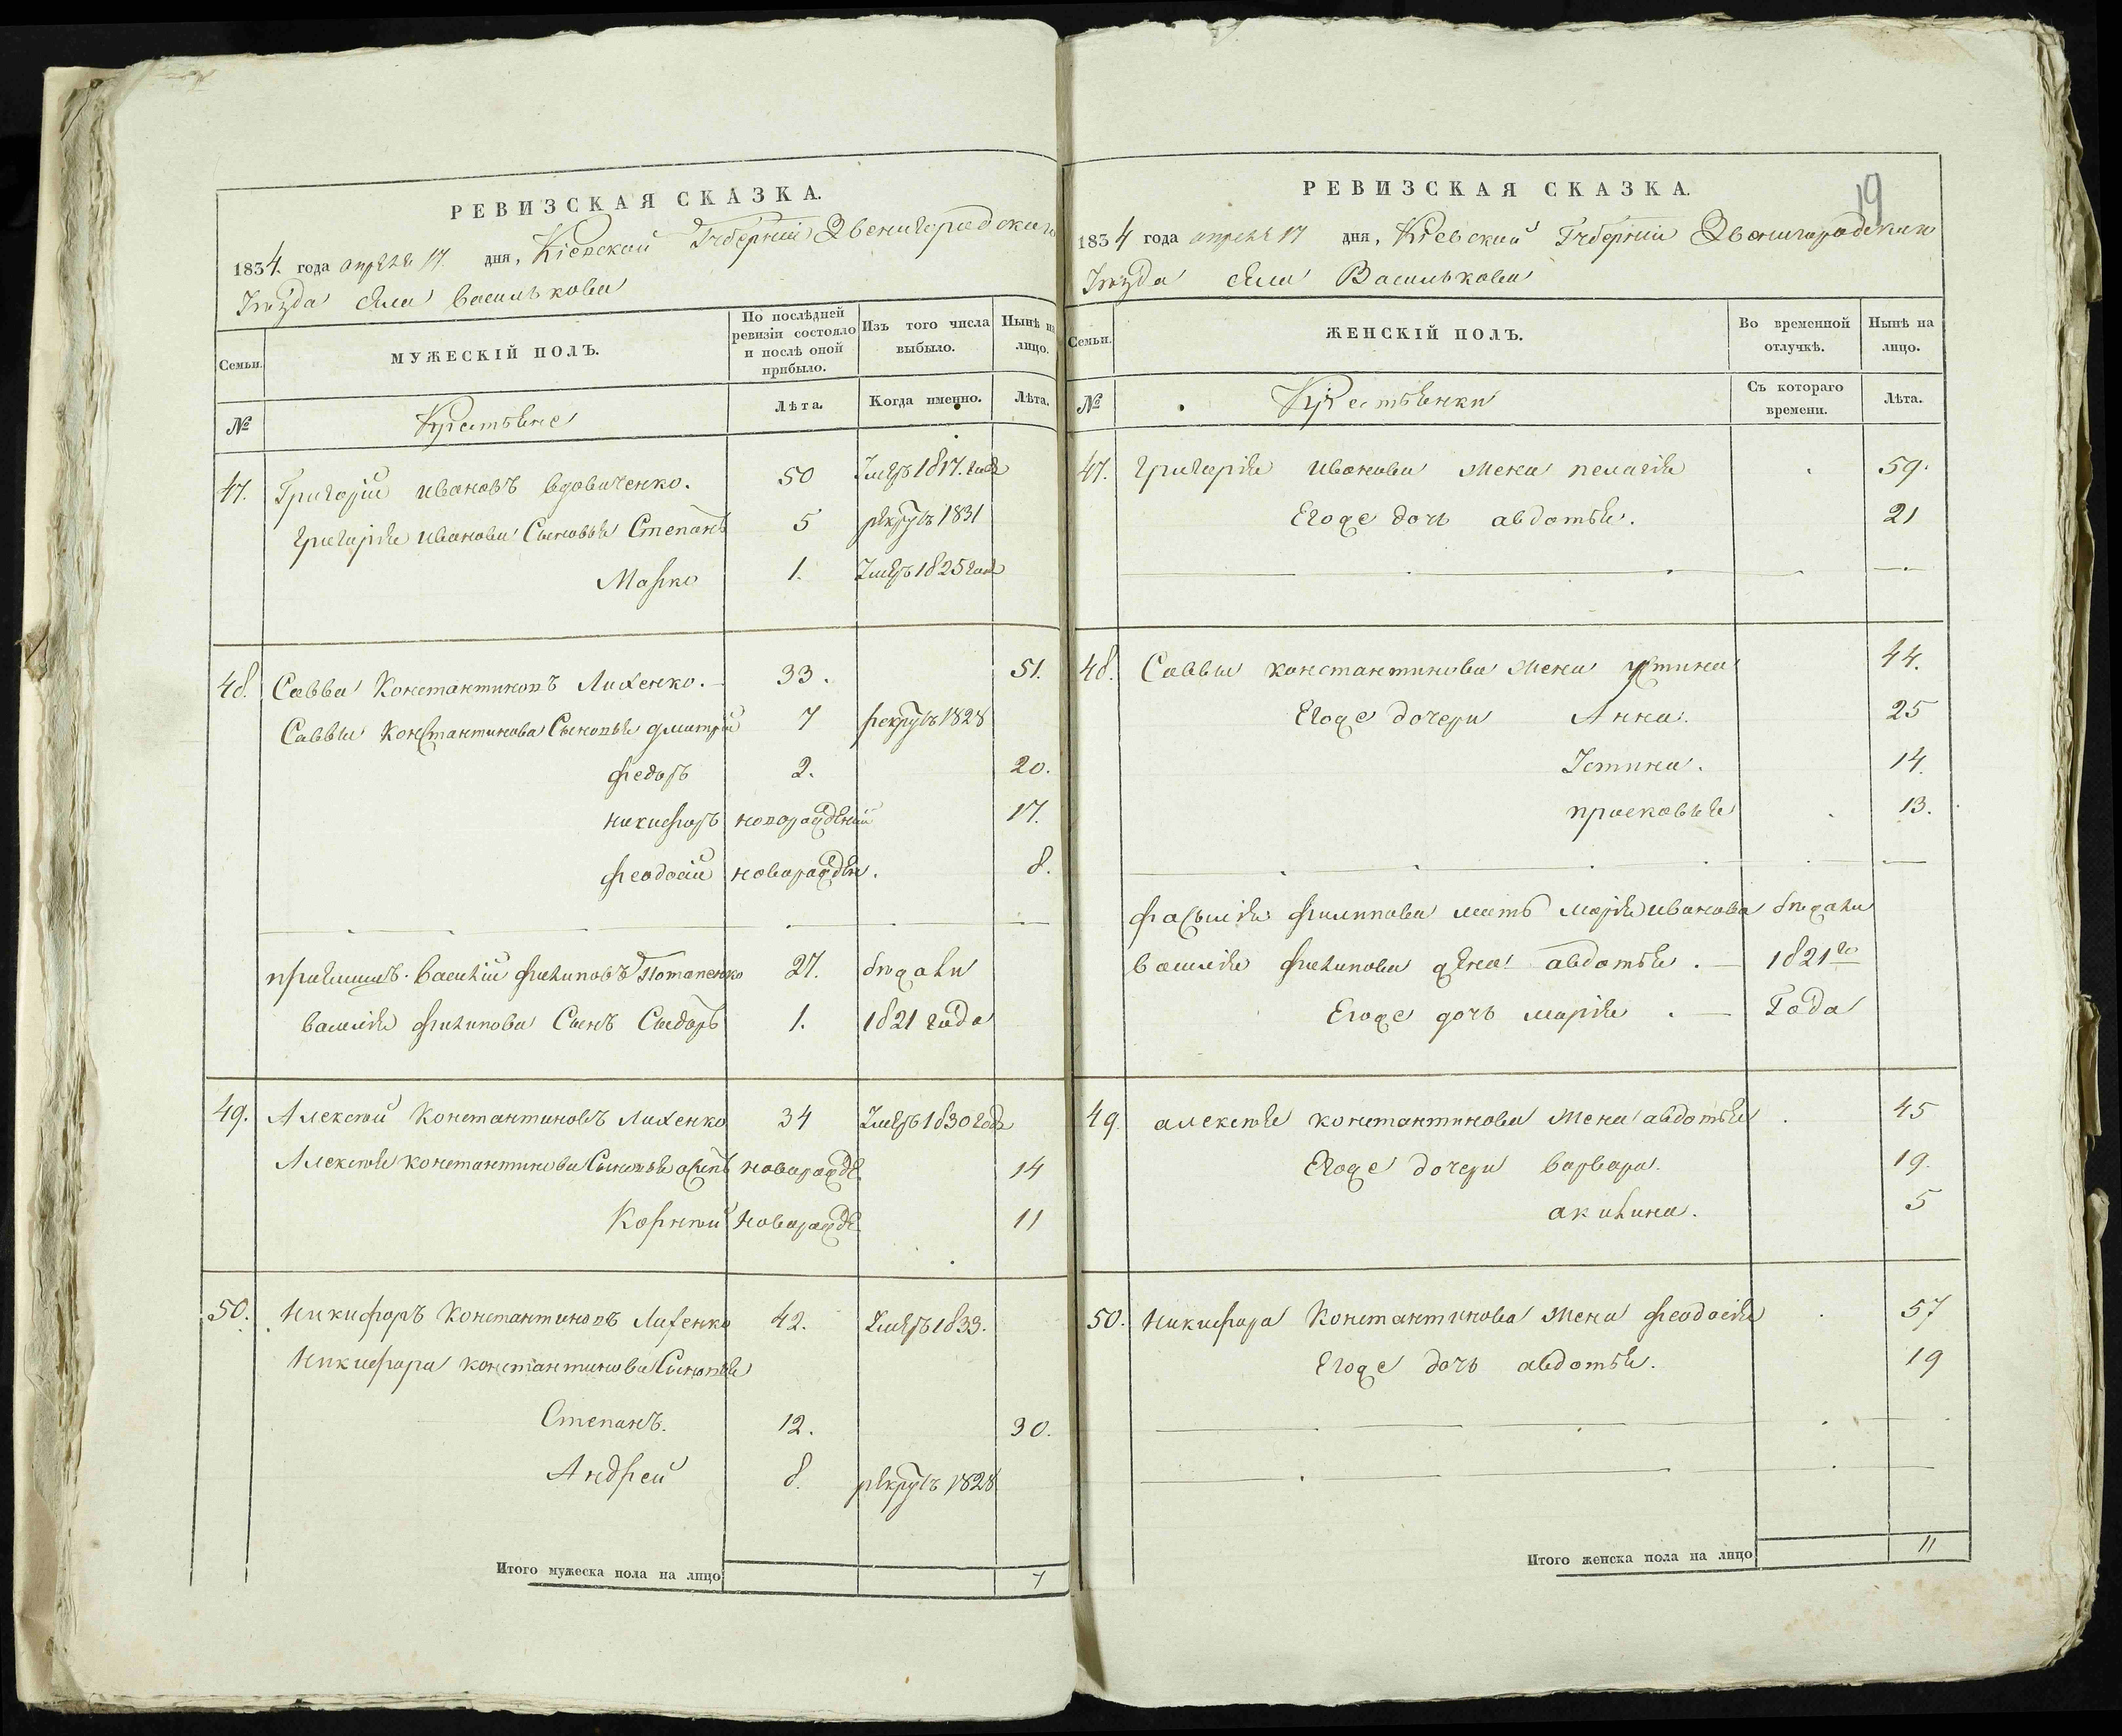 РЕВИЗСКАЯ СКАЗКА.
1834. года апреля 17. дня, Кіевской Губерніи Звенигородскаго
Уѣзда Села Василькова
Семьи.
МУЖЕСКІЙ ПОЛЪ.
По послѣдней ревизіи состояло и послѣ оной прибыло.
Изъ того числа выбыло.
Нынѣ на лицо.
№
Крестьяне
Лѣта.
Когда именно.
Лѣта.
47. Григорій Ивановъ Вдовиченко. 50 Умеръ 1817. года
Григорія Иванова Сыновья Степанъ 5 рекрутъ 1831
Марко 1. Умеръ 1825 года
48. Савва Константиновъ Лихенко. 33. 51.
Саввы Константинова Сыновья Дмитрій 7 рекрутъ 1828
Федоръ 2. 20.
никифоръ новорожденій 17.
Феодосій новорожден. 8.
Василій Филиповъ Потапенко 27. бѣжали
Василія Филипова Сынъ Сыдоръ 1. 1821 года
49. Алексѣй Константиновъ Лихенко 34 Умеръ 1830 года
Алексѣя Константинова Сыновья новорожде. 14
Корнѣй новорожде. 11
50. Никифоръ Константиновъ Лихенко 42. Умеръ 1833.
Никифора Константинова Сыновья
Степанъ. 12. 30.
Андрей 8. рекрутъ 1828
Итого мужеска пола на лицо 7
19
РЕВИЗСКАЯ СКАЗКА.
1834 года апреля 17 дня, Кіевской Губерніи Звенигородскаго
Уѣзда Села Василькова
Семьи.
ЖЕНСКІЙ ПОЛЪ.
Во временной отлучкѣ.
Нынѣ на лицо.
№
Крестьянки
Съ котораго времени.
Лѣта.
47. Григорія Иванова жена пелагія 59.
Егоже дочь авдотья. 21
48. Саввы Константинова жена Устина 44.
Егоже дочери Анна. 25
Устина. 14.
прасковья 13.
Филипова мать марія иванова бѣжали
Василія Филипова жена авдотья. 1821го
Егоже дочь марія. Года
49. алексѣя Константинова жена авдотья 45
Егоже дочери варвара. 19.
акилина. 5
50. Никифора Константинова жена Феодосія 57
Егоже дочь авдотья. 19
Итого женска пола на лицо 11